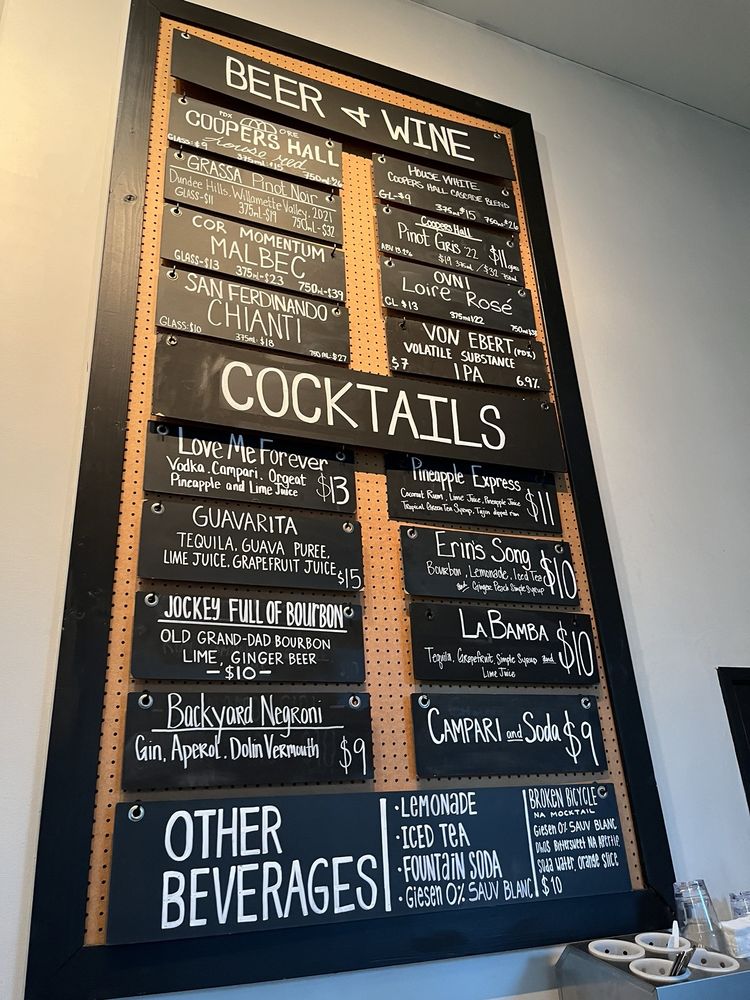 BEER & WINE
PDX ORE
COOPERS HALL
house red
GLASS-$9 375ml-$15 750ml-$26
GRASSA Pinot Noir
Dundee Hills, Willamette Valley, 2021
GLASS-$11 375ml-$19 750ml-$32
COR MOMENTUM
MALBEC
GLASS-$13 375ml-$23 750ml-$39
SAN FERDINANDO
CHIANTI
GLASS:$10 375ml-$18 750ml-$27
HOUSE WHITE
COOPERS HALL CASCADE BLEND
GL-$9 375ml$15 750ml-$26
Coopers Hall
Pinot Gris '22 $11
$19 375ml / $32 750ml
OVNI
Loire Rosé
GL $13 375ml$22 750ml
VON EBERT (PDX)
VOLATILE SUBSTANCE
$7 IPA 6.9%
COCKTAILS
Love Me Forever
Vodka, Campari, Orgeat
Pineapple and Lime Juice $13
GUAVARITA
TEQUILA, GUAVA PUREE,
LIME JUICE, GRAPEFRUIT JUICE $15
JOCKEY FULL OF BOURBON
OLD GRAND-DAD BOURBON
LIME, GINGER BEER
-$10-
Backyard Negroni
Gin, Aperol, Dolin Vermouth $9
Pineapple Express
Coconut Rum, Lime Juice, Pineapple Juice
Tropical Green Tea Syrup, Tajin dipped rim $11
Erin's Song
Bourbon, Lemonade, Iced Tea
and Ginger Peach Simple Syrup $10
LA BAMBA
Tequila, Grapefruit, Simple Syrup and
Lime Juice $10
CAMPARI and Soda $9
OTHER
BEVERAGES
·LEMONADE
·ICED TEA
·FOUNTAIN SODA
·Giesen 0% SAUV BLANC
BROKEN BICYCLE
NA MOCKTAIL
Giesen 0% SAUV BLANC
Bittersweet NA Aperitif,
soda water, orange slice
$10